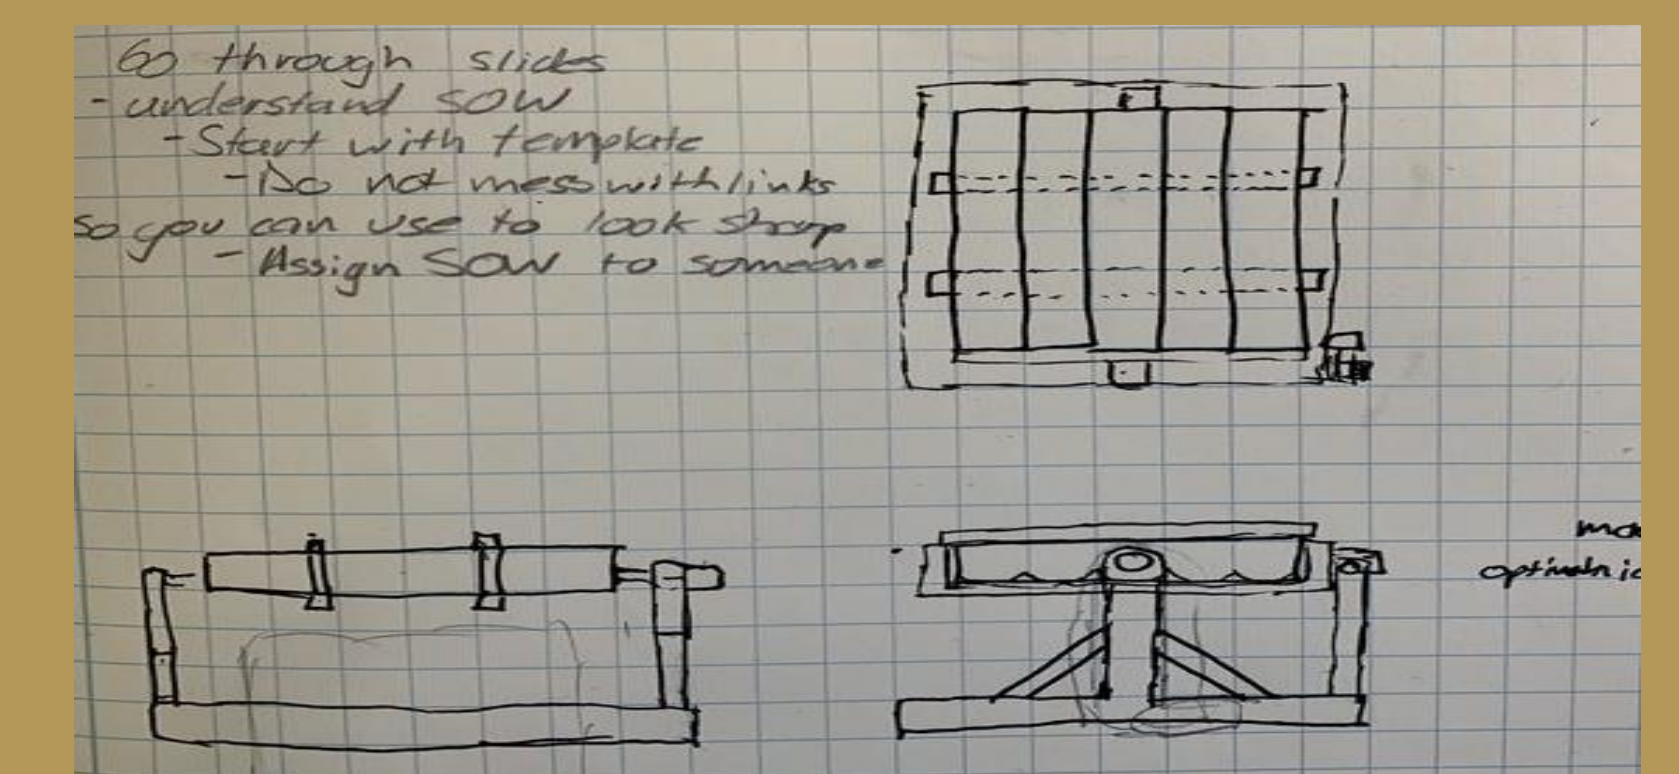 Go through slides
- understand SOW
- Start with template
- Do not mess with links
so you can use to look sharp
- Assign SOW to someone